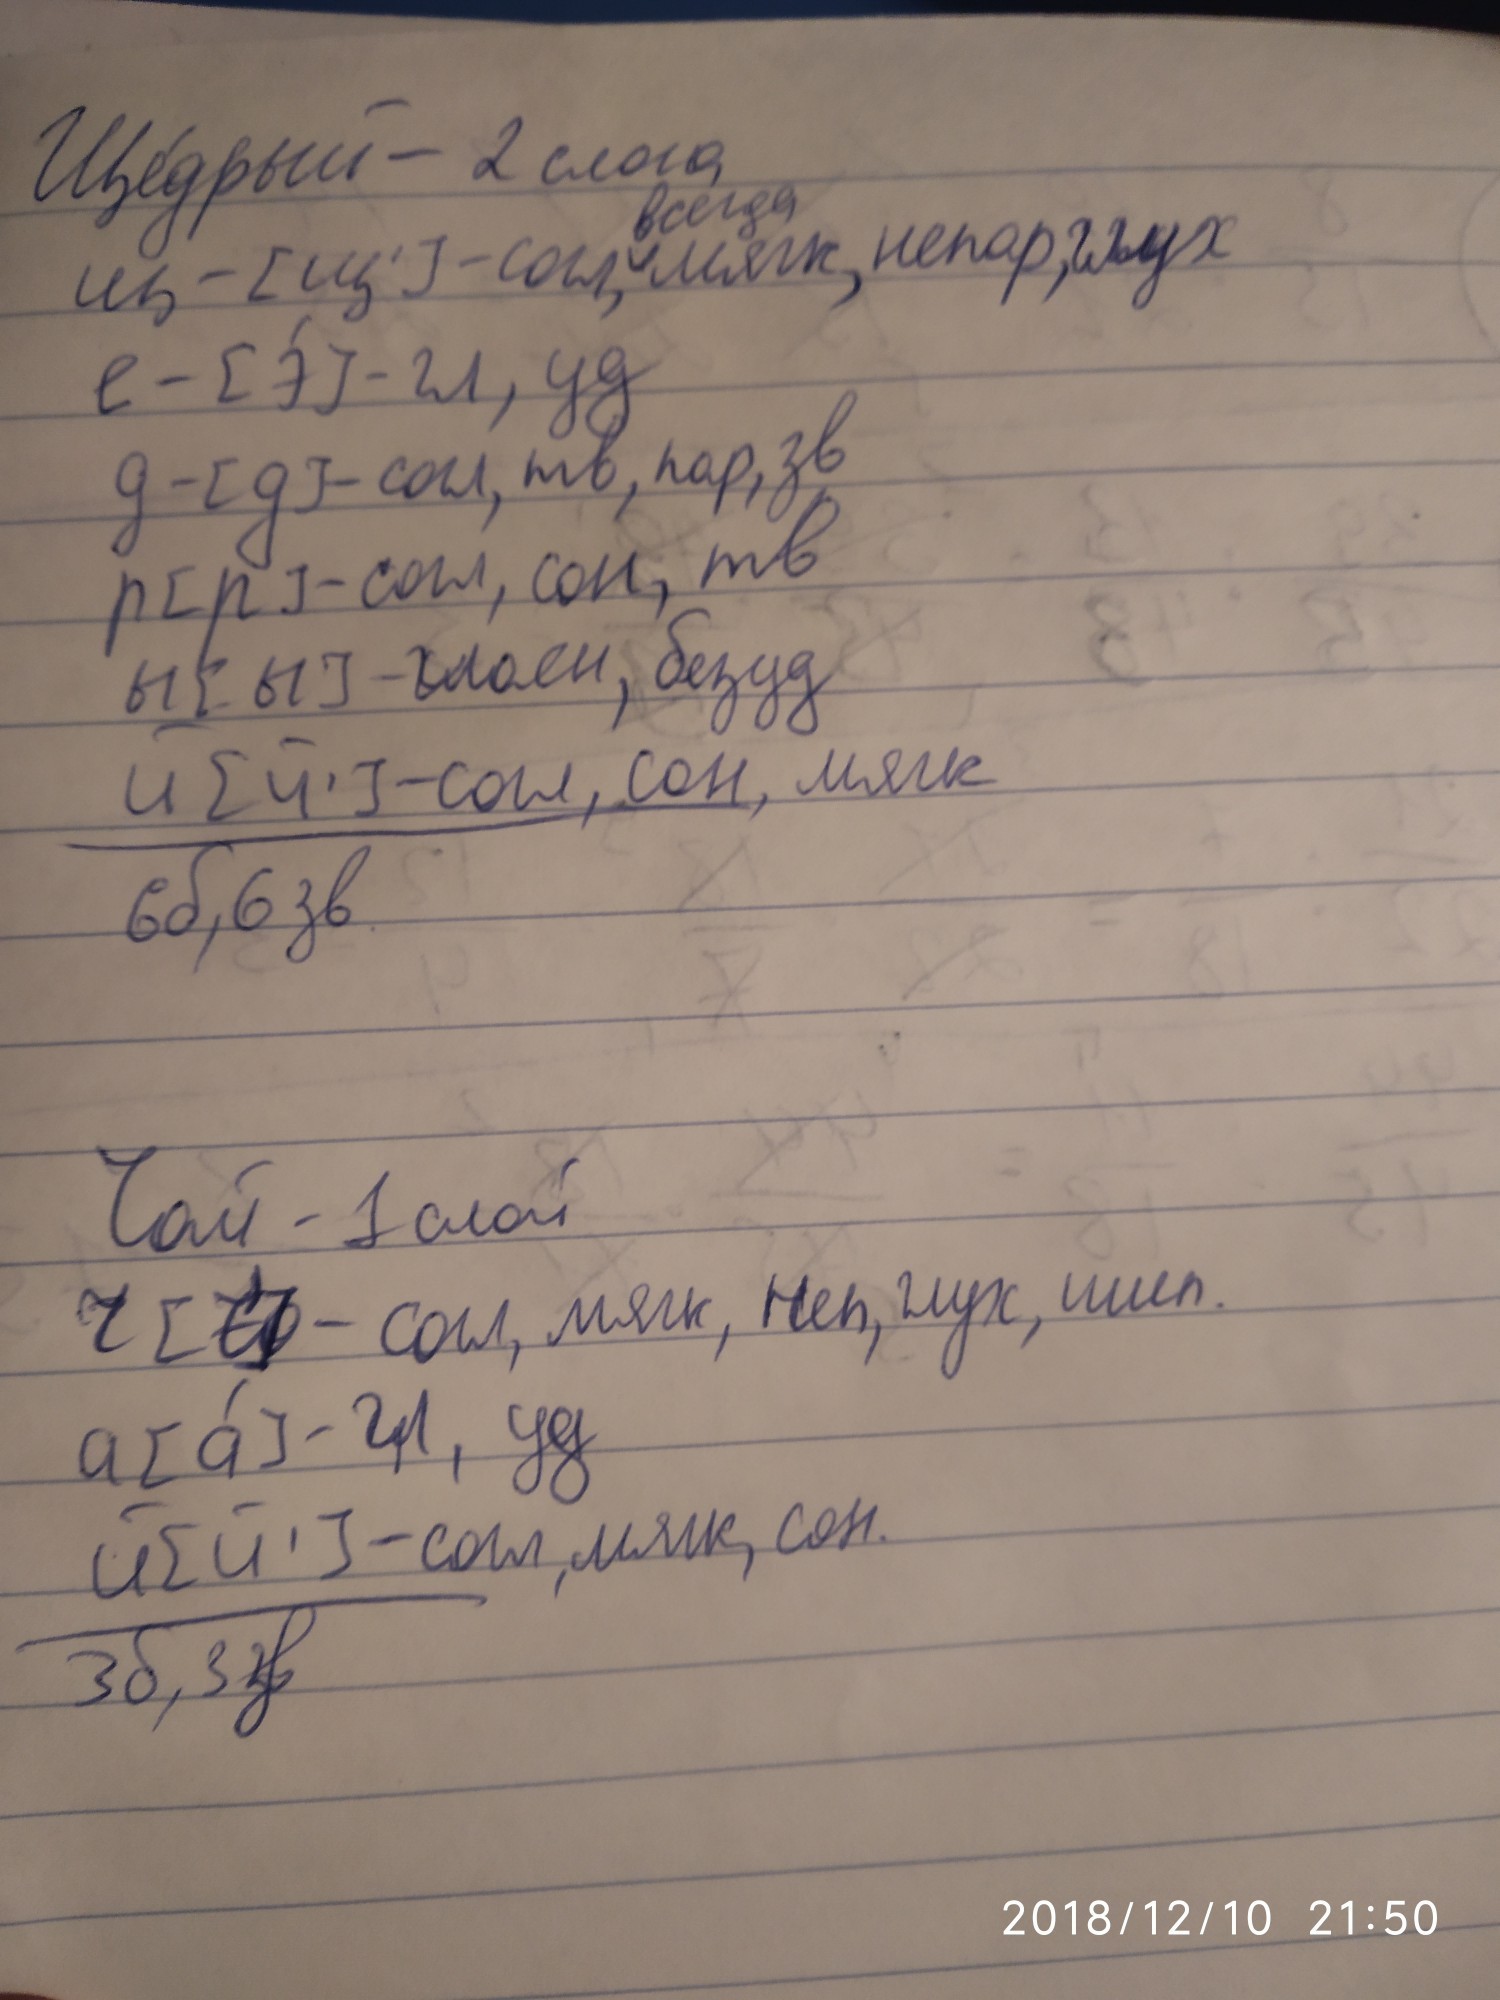 Щедрый - 2 слога
щ - [щ'] - согл, всегда мягк, непар, глух
е - [э́] - гл, уд
д - [д] - согл, тв, пар, зв
р [р] - согл, сон, тв
ы [ы] - гласн, безуд
й [й'] - согл, сон, мягк
6б, 6 зв
Чай - 1 слой
ч [ч'] - согл, мягк, неп, глух, шип.
а [а́] - гл, уд
й [й'] - согл, мягк, сон.
3б, 3 зв
2018/12/10 21:50